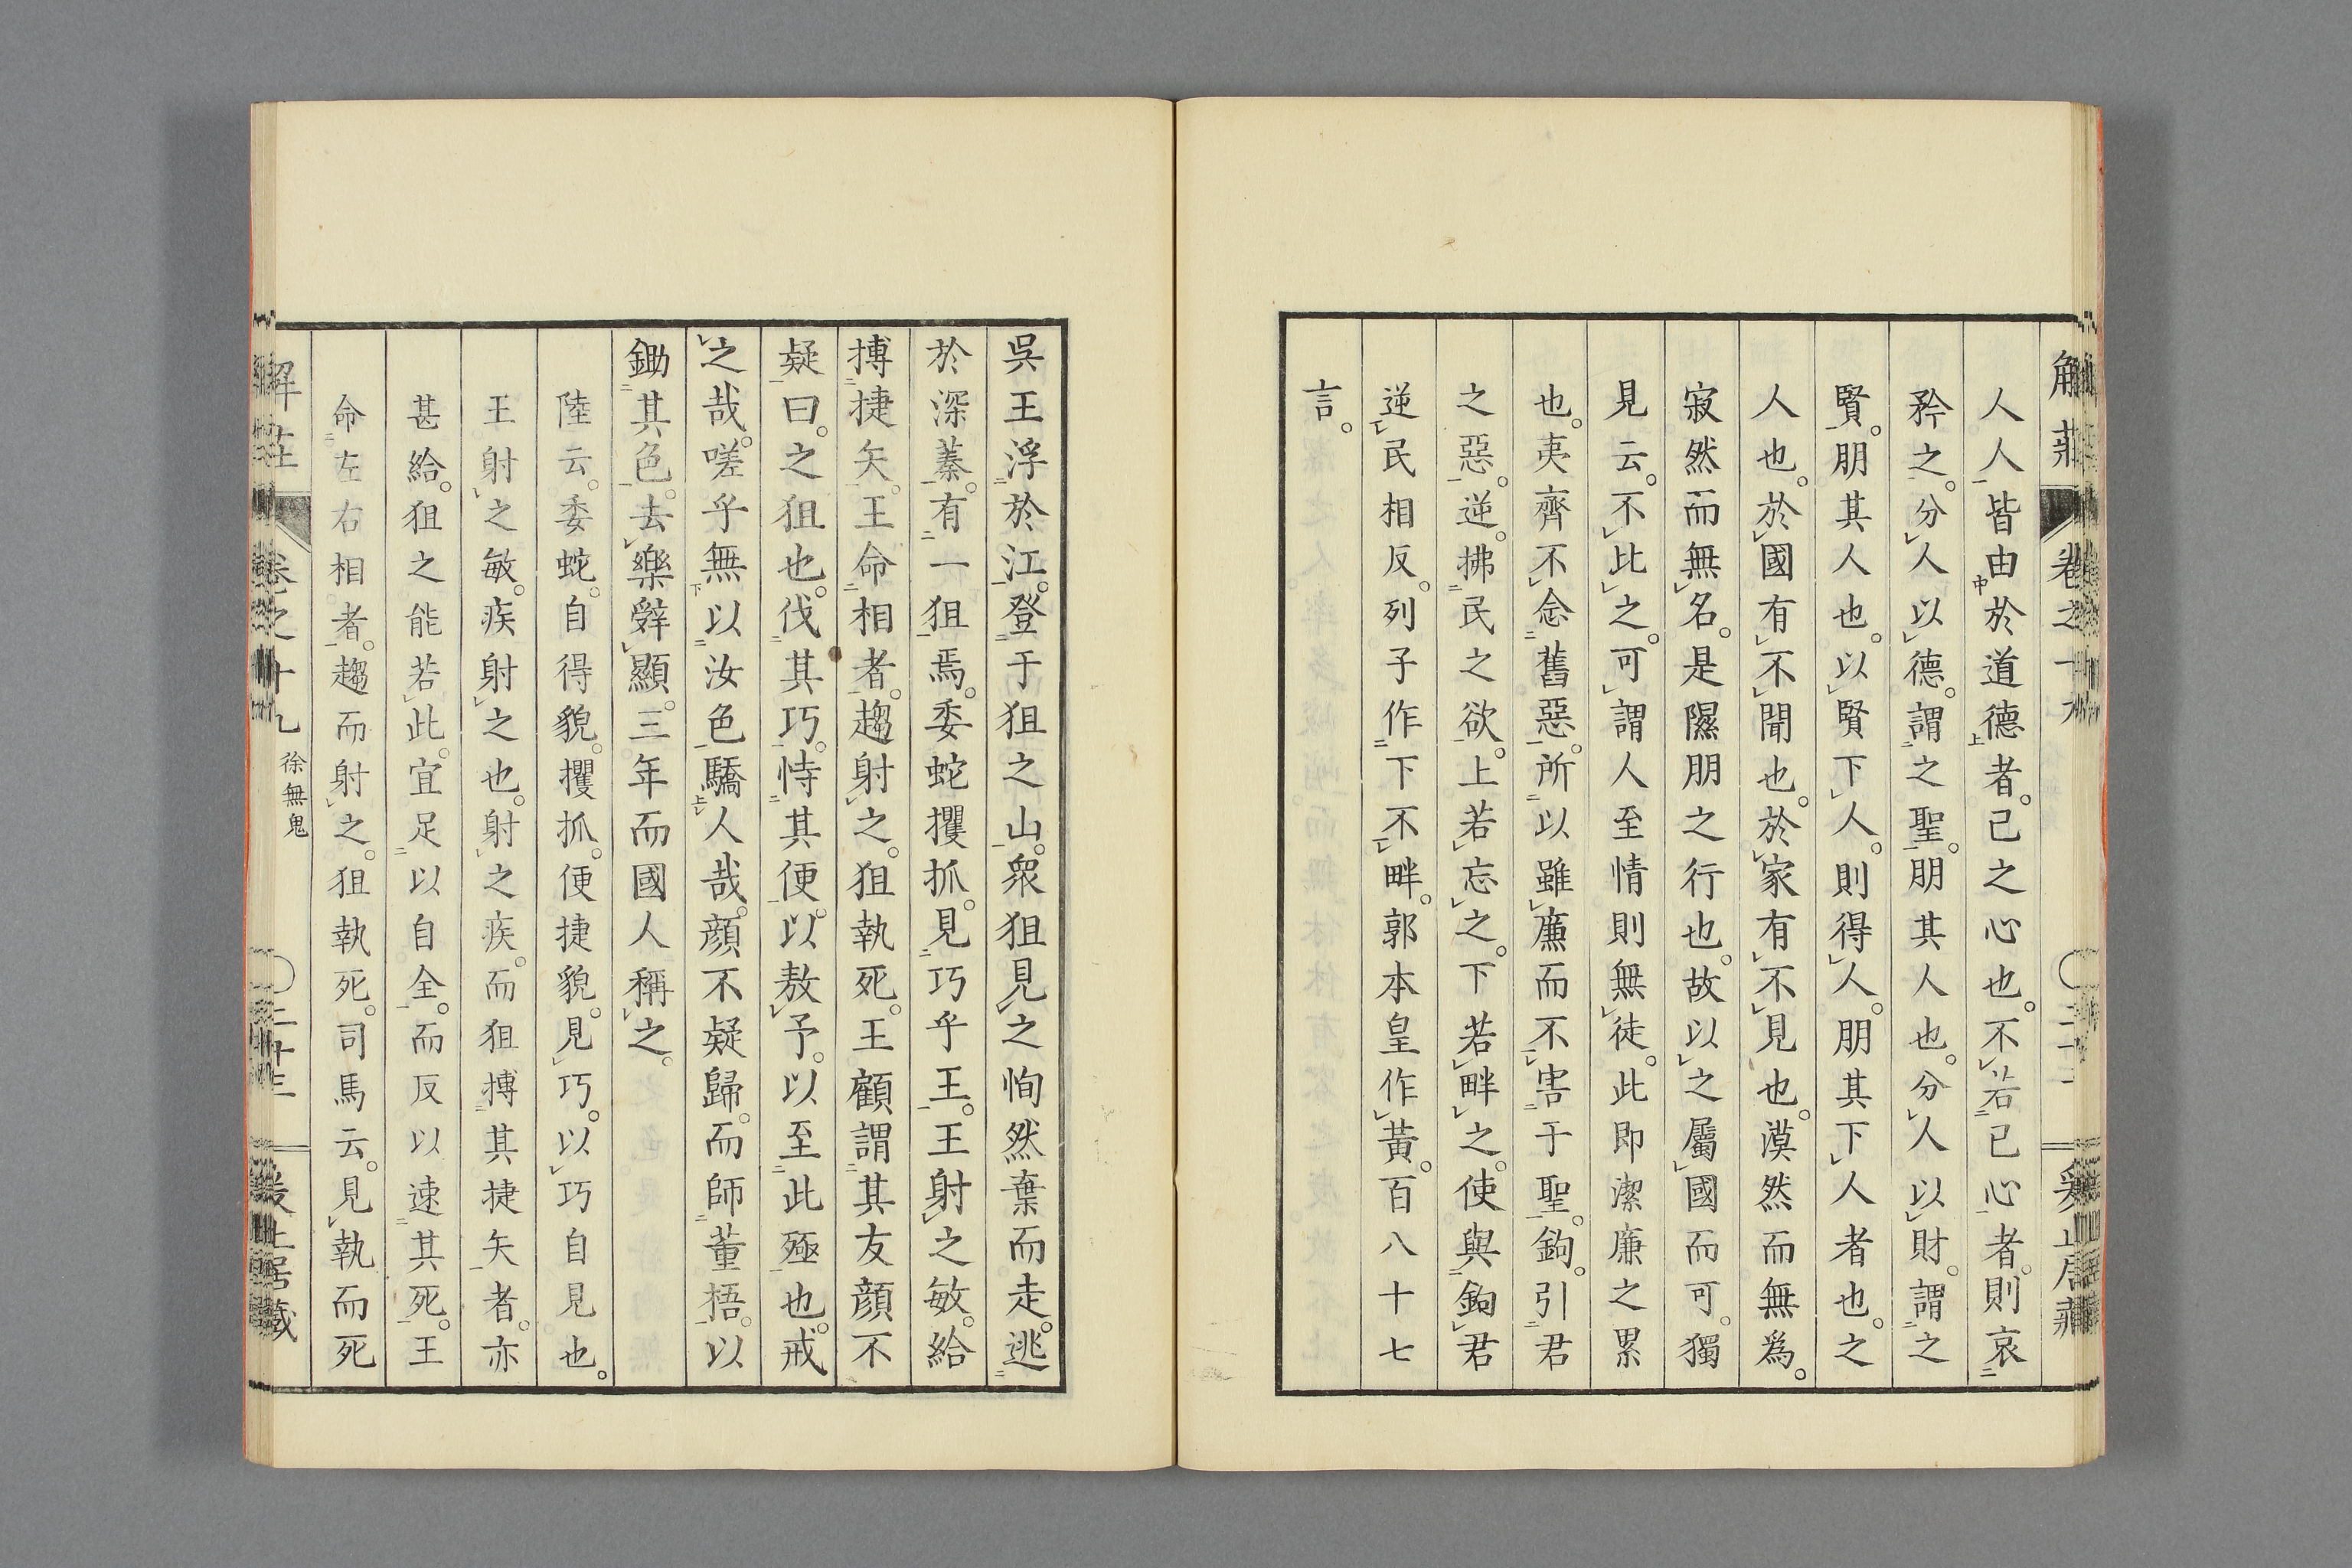 人人皆由於道德者。己之心也。不若已心者。則哀
矜之。分人以德。謂之聖。朋其人也。分人以財。謂之
賢。朋其人也。以賢下人。則得人。朋其下人者也。之
人也。於國有不聞也。於家有不見也。漠然而無爲。
寂然而無名。是隰朋之行也。故以之屬國而可。獨
見云。不比之。可謂人至情則無徒。此即潔廉之累
也。夷齊不念舊惡。所以雖廉而不害于聖。鉤。引君
之惡。逆。拂民之欲。上若忘之。下若畔之。使與鉤君
逆民相反。列子作下不畔。郭本皇作黃。百八十七
言。
吳王浮於江。登于狙之山。衆狙見之恂然棄而走。逃
於深蓁。有一狙焉。委蛇攫抓。見巧乎王。王射之敏。給
搏捷矢。王命相者。趨射之。狙執死。王顧謂其友顔不
疑曰。之狙也。伐其巧。恃其便。以敖予。以至此殛也。戒
之哉。嗟乎無以汝色驕人哉。顔不疑歸。而師董梧。以
鋤其色。去樂辭顯。三年而國人稱之。
陸云。委蛇。自得貌。攫抓。便捷貌。見巧。以巧自見也。
王射之敏。疾射之也。射之疾。而狙搏其捷矢者。亦
甚給。狙之能若此。宜足以自全。而反以速其死。王
命左右相者。趨而射之。狙執死。司馬云。見執而死
解莊
卷之十九
徐無鬼